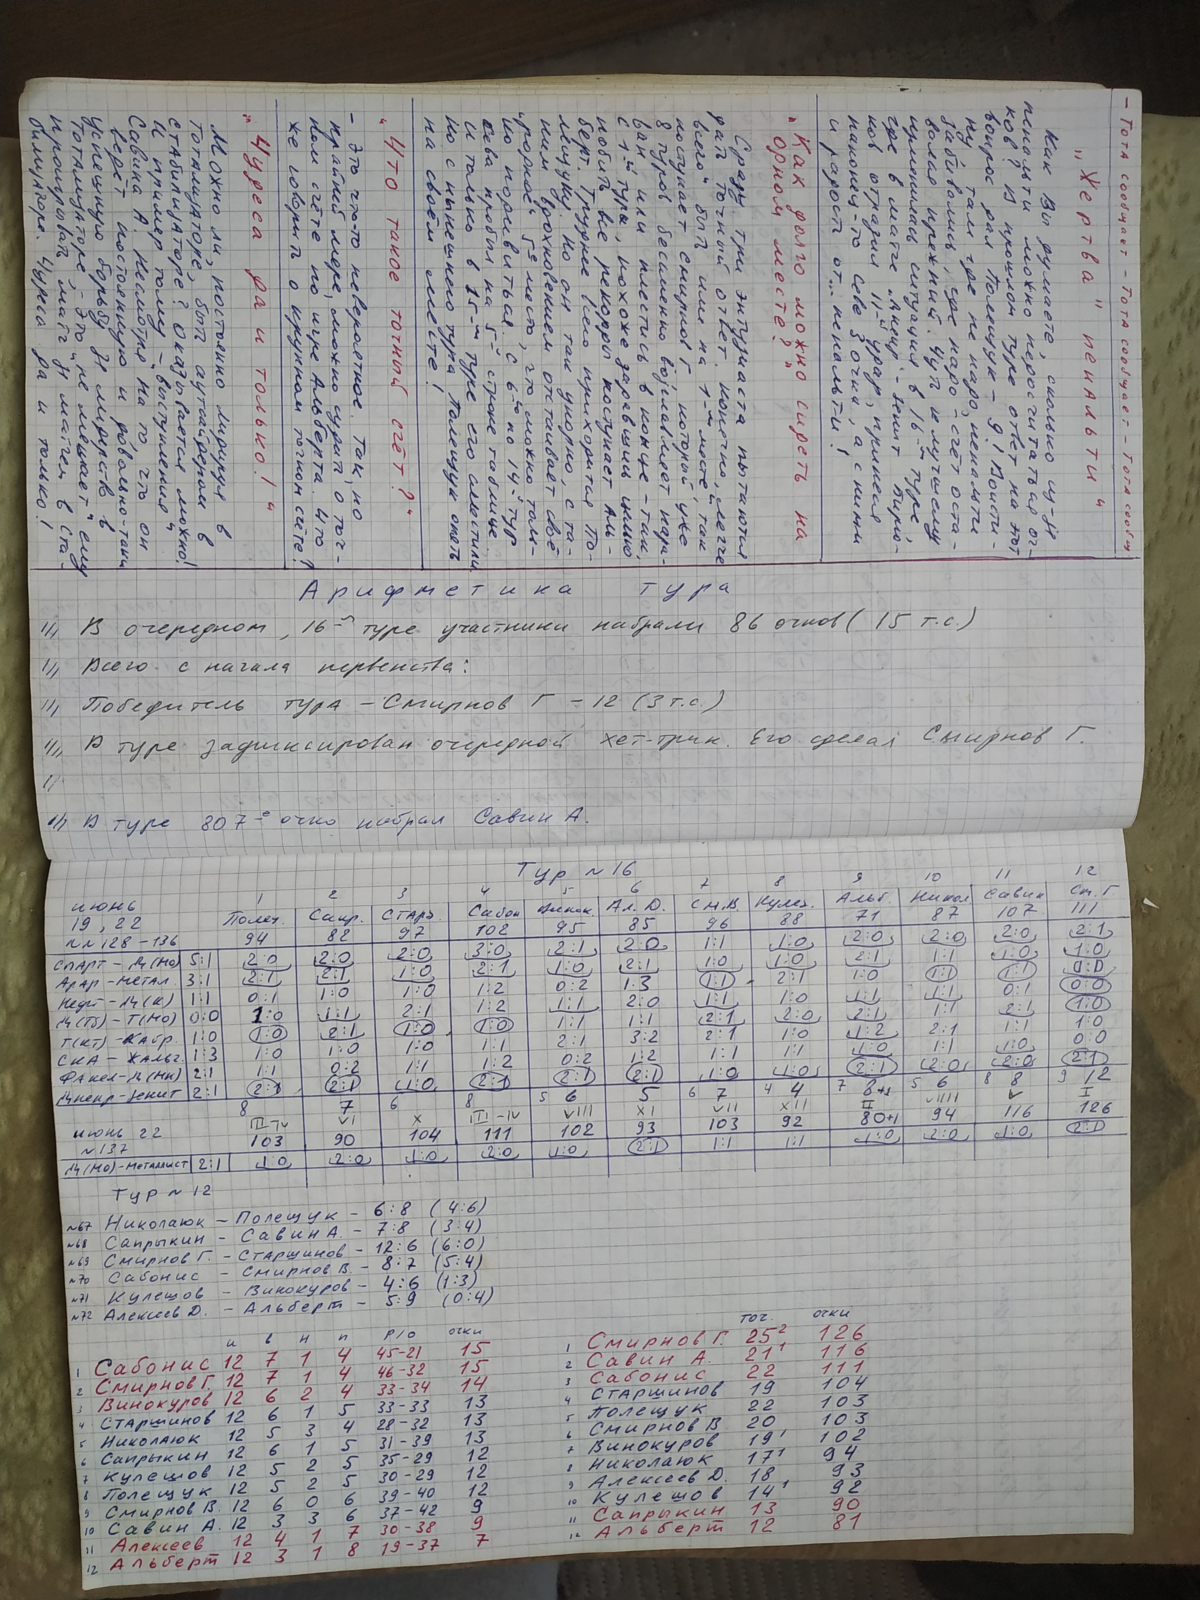 – Тота сообщает – Тота сообщает – Тота сообщает – Тота сообщ
"Жертва" пенальти"
Как Вы думаете, сколько 11-и
пенальти можно неросчитаться оч-
ков? В прошлом туре ответ на этот
вопрос дал Полещук – 9! Воисти-
ну, там где не надо, пенальти
забивались, где надо – счёт оста-
вался прежний. Чуть к лучшему
изменилась ситуация в 16-м туре,
где в матче „Днепр" – Зенит Бирю-
ков отразил 11-й удар, принеся
наконец-то себе 3 очка, а с ними
и радость от... пенальти!
"Как долго можно сидеть на
одном месте?"
Сразу три энтузиаста пытаются
дать точный ответ. Конечно, легче
всего быть им на 1-м месте, так
поступает Смирнов Г, который уже
8 туров бессменно возглавляет кара-
ван или плестись в конце – так,
с 1-го тура, похоже задавшись целью
побить все рекорды поступает Аль-
берт. Труднее всего приходится По-
лещуку. Но он так упорно, с та-
ким вдохновением отстаивает своё
„родное" 5-е место, что можно толь-
ко подивиться. С 6-го по 14-й тур
Слева пробыл на 5-й строке таблице
и только в 15-м туре его сместили
но с нынешнего тура, Полещук опять
на своём месте!
"Что такое точный счёт?"
– Это что-то невероятное. Так, по
крайней мере, можно судить о точ-
ном счёте по игре Альберта. Что
же говорить о крупном точном счёте?
"Чудеса да и только!"
Можно ли, постоянно лидируя в
тотализаторе, быть аутсайдером в
стабилизаторе? Оказывается можно!
И пример тому – выступления
Савина А. Несмотря на то что он
ведёт постоянную и довольно-таки
успешную борьбу за лидерство в
тотализаторе, это не мешает ему
проигрывать матч за матчем в ста-
билизаторе. Чудеса да и только!
Арифметика тура
//, В очередном, 16-м туре участники набрали 86 очков (15 т.с.)
//, Всего с начала первенства:
//, Победитель тура – Смирнов Г – 12 (3 т.с.)
//, В туре зафиксирован очередной хет-трик. Его сделал Смирнов Г.
//
//, В туре 807-е очко набрал Савин А.
Тур № 16
1 2 3 4 5 6 7 8 9 10 11 12
июнь 19, 22 Полещ. Сапр. Старш. Сабон Винок. Ал. Д. См.В Кулеш. Альб. Никол Савин См. Г
№№ 128–136 94 82 97 102 95 85 96 88 71 87 107 111
Спарт – Д(Мо) 5:1 2:0 2:0 2:0 3:0 2:1 2:0 1:1 1:0 2:0 2:0 2:0 2:1
Арар – Метал 3:1 2:1 2:1 1:0 2:1 1:0 2:1 1:0 1:0 2:1 1:1 1:0 1:0
Нефт – Д(К) 1:1 0:1 1:0 1:0 1:2 0:2 1:3 1:1 2:1 1:0 1:1 1:1 0:0
Д(Тб) – Т(Мо) 0:0 1:0 1:1 2:1 1:2 1:1 2:0 1:1 1:0 1:1 1:1 0:1 0:0
Т(Кт) – Кабр. 1:0 1:0 2:1 1:0 1:0 1:1 1:1 2:1 2:0 2:1 1:1 2:1 1:0
СКА – Жальг. 1:3 1:0 1:0 1:0 1:1 2:1 3:2 2:1 1:0 1:2 2:1 1:1 1:0
Факел – Д(Мн) 2:1 1:1 0:2 1:1 1:2 0:2 1:2 1:1 1:1 1:0 1:1 1:0 0:0
Днепр – Зенит 2:1 2:1 2:1 1:0 2:1 2:1 2:1 1:0 1:0 2:1 2:0 2:0 2:1
8 7 6 8 5 6 5 6 7 4 4 7 8+1 5 6 8 8 9 12
III–IV VI X III–IV VIII XI VII XII II VIIII V I
июнь 22 103 90 104 111 102 93 103 92 80+1 94 116 126
№ 137
Д(Мо) – Металлист 2:1 1:0 2:0 1:0 2:0 1:0 2:1 1:1 1:1 1:0 2:0 1:0 2:1
Тур № 12
№67 Николаюк – Полещук – 6:8 (4:6)
№68 Сапрыкин – Савин А. – 7:8 (3:4)
№69 Смирнов Г. – Старшинов – 12:6 (6:0)
№70 Сабонис – Смирнов В. – 8:7 (5:4)
№71 Кулешов – Винокуров – 4:6 (1:3)
№72 Алексеев Д. – Альберт – 5:9 (0:4)
и в н п р/о очки
1 Сабонис 12 7 1 4 45–21 15
2 Смирнов Г. 12 7 1 4 46–32 15
3 Винокуров 12 6 2 4 33–34 14
4 Старшинов 12 6 1 5 33–33 13
5 Николаюк 12 5 3 4 28–32 13
6 Сапрыкин 12 6 1 5 31–39 13
7 Кулешов 12 5 2 5 35–29 12
8 Полещук 12 5 2 5 30–29 12
9 Смирнов В. 12 6 0 6 39–40 12
10 Савин А. 12 3 3 6 37–42 9
11 Алексеев 12 4 1 7 30–38 9
12 Альберт 12 3 1 8 19–37 7
точ. очки
1 Смирнов Г. 25² 126
2 Савин А. 21¹ 116
3 Сабонис 22 111
4 Старшинов 19 104
5 Полещук 22 103
6 Смирнов В. 20 103
7 Винокуров 19¹ 102
8 Николаюк 17¹ 94
9 Алексеев Д. 18 93
10 Кулешов 14¹ 92
11 Сапрыкин 13 90
12 Альберт 12 81